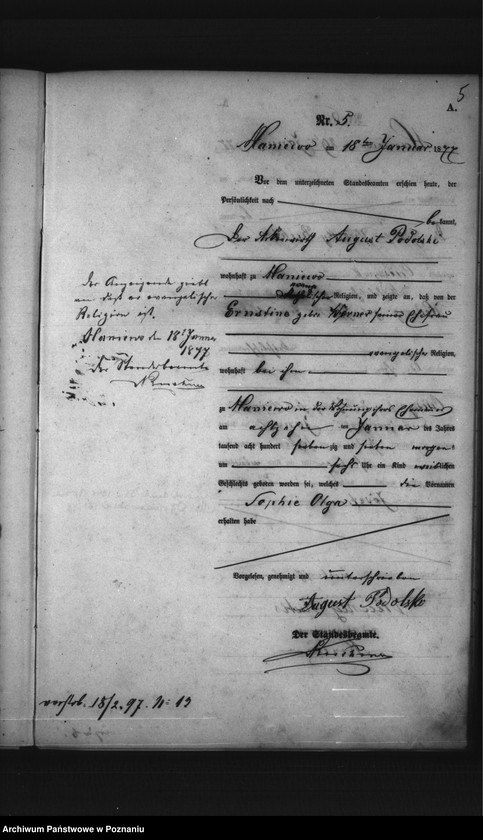 5
A.
Nr. 5.
Maniewo am 18ten Januar 1877
Vor dem unterzeichneten Standesbeamten erschien heute, der
Persönlichkeit nach
bekannt,
Der Ackerwirth August Podolski
wohnhaft zu Maniewo
Religion, und zeigte an, daß von der
Ernstine geb. seiner Ehefrau
evangelischer Religion,
wohnhaft bei ihm
zu Maniewo in der Wohnung
am achtzehn ten Januar des Jahres
tausend acht hundert siebenzig und sieben morgens
um sechs Uhr ein Kind weiblichen
Geschlechts geboren worden sei, welches die Vornamen
Sophie Olga
erhalten habe
Vorgelesen, genehmigt und unterschrieben
August Podolski
Der Standesbeamte.
Der Anzeigende giebt
an daß er evangelischer
Religion ist.
Maniewo den 18t Januar
1877
Der Standesbeamte
verstorb. 18/2. 97. Nr 13
Archiwum Państwowe w Poznaniu